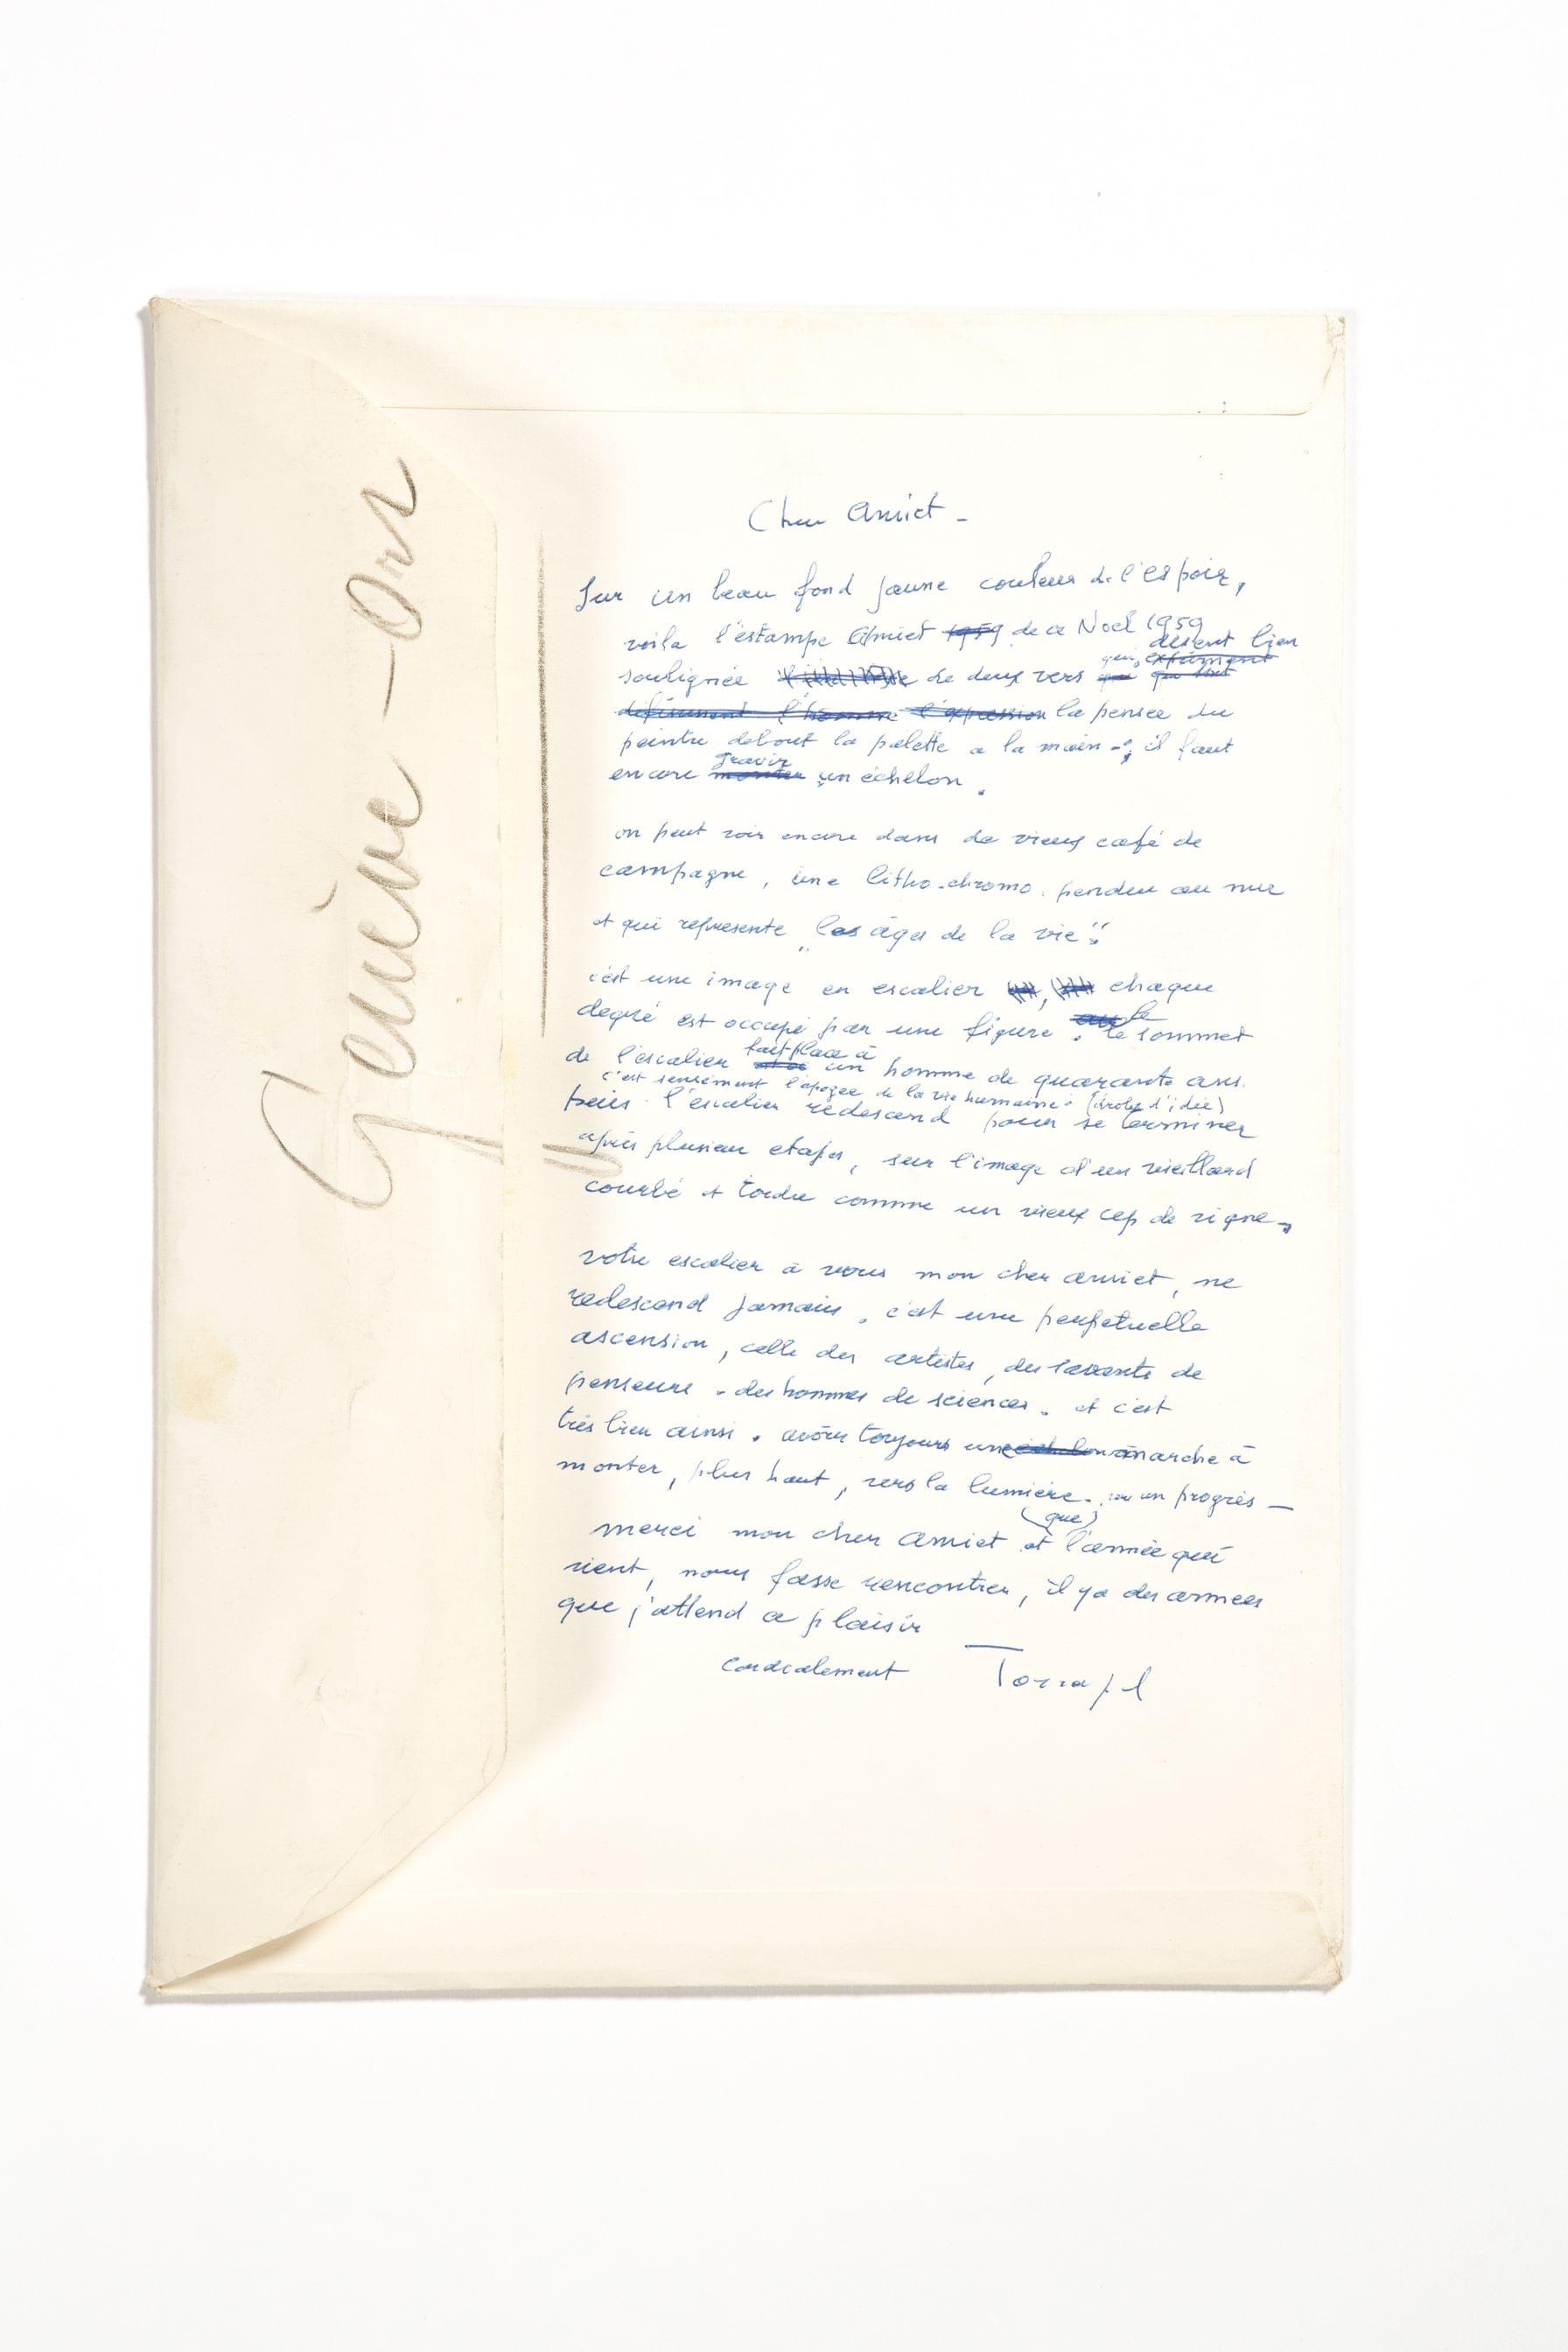 Genève - Ons
Cher Amiet -
Sur un beau fond jaune couleur de l'espoir,
voila l'estampe Amiet 1959 de ce Noel 1959
disent bien
qui, expriment
soulignée de deux vers que qui sont
définissent l'homme l'expression la pensée du
peintre debout la palette a la main - ; il faut
gravir
encore monter un échelon .
on peut voir encore dans de vieux café de
campagne , une litho-chromo . pendu au mur
et qui represente „ les âges de la vie "
c'est une image en escalier , chaque
le
degré est occupé par une figure . au le sommet
fait place à
de l'escalier est un homme de quarante ans.
c'est sensément l'apogée de la vie humaine . (drole d'idée)
puis l'escalier redescend pour se terminer
après plusieur etapes , sur l'image d'un vieillard
courbé et tordu comme un vieux cep de vigne -
votre escalier à vous mon cher amiet , ne
redescend jamais . c'est une perpetuelle
ascension , celle des artistes , des savants de
penseurs . des hommes de sciences . et c'est
très bien ainsi . avoir toujours une échelon marche à
monter , plus haut , vers la lumière . un progrès -
(que)
merci mon cher Amiet et l'année qui
vient , nous fasse rencontrer , il y a des annees
que j'attend ce plaisir
cordialement